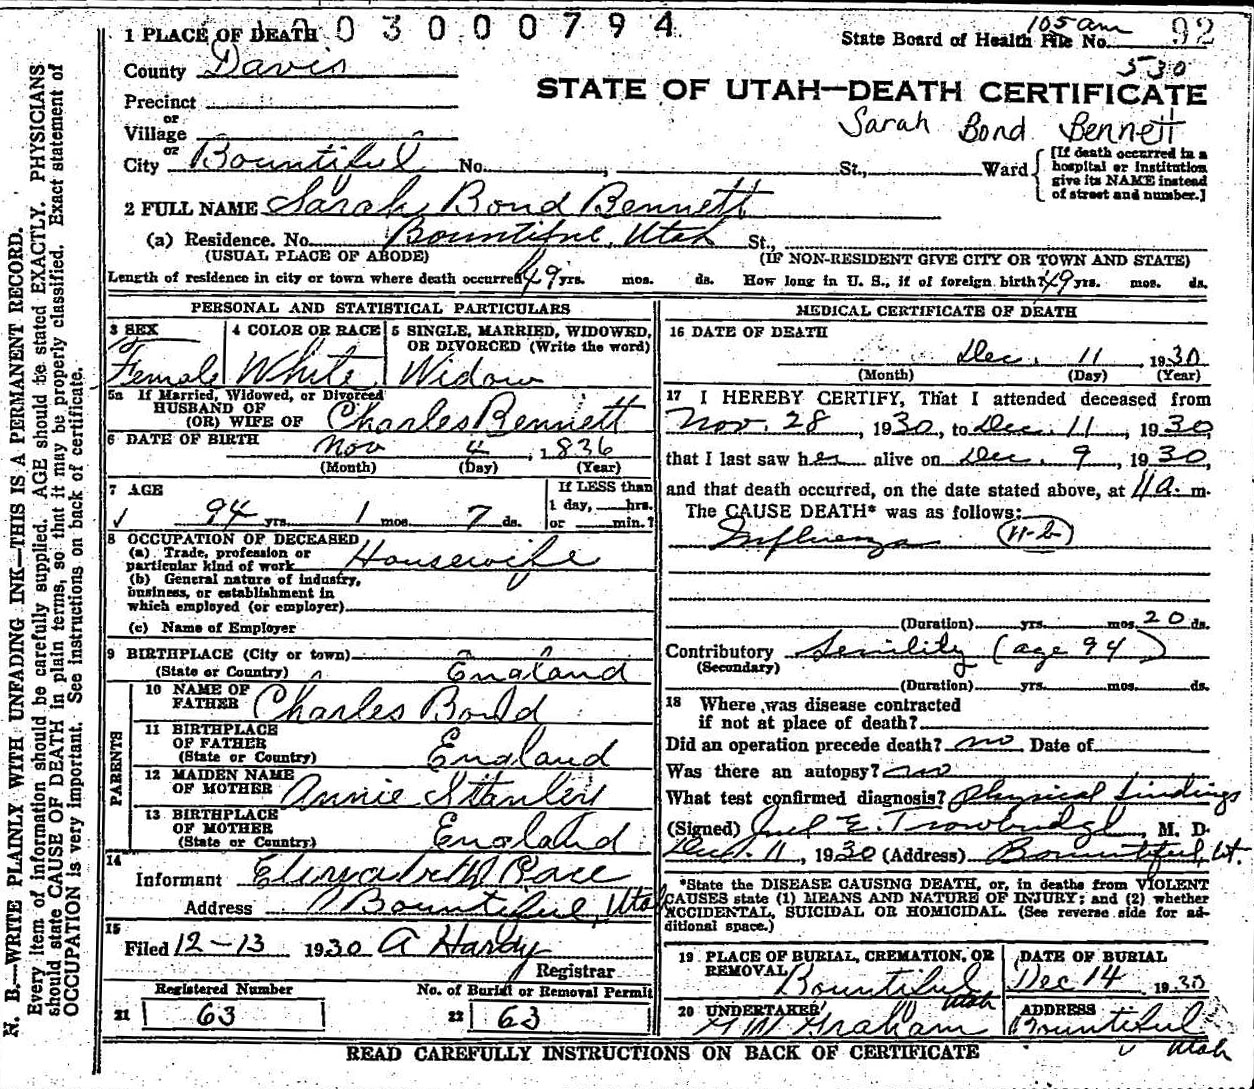 003000794
1 PLACE OF DEATH
105 am
State Board of Health File No. 92
County Davis
530
STATE OF UTAH—DEATH CERTIFICATE
Precinct
or
Village
Sarah Bond Bennett
or
City Bountiful No. , St., Ward
[If death occurred in a hospital or institution give its NAME instead of street and number.]
2 FULL NAME Sarah Bond Bennett
(a) Residence. No. Bountiful, Utah St.,
(USUAL PLACE OF ABODE) (IF NON-RESIDENT GIVE CITY OR TOWN AND STATE)
Length of residence in city or town where death occurred 49 yrs. mos. ds. How long in U. S., if of foreign birth? 49 yrs. mos. ds.
PERSONAL AND STATISTICAL PARTICULARS
3 SEX
Female
4 COLOR OR RACE
White
5 SINGLE, MARRIED, WIDOWED,
OR DIVORCED (Write the word)
Widow
5a If Married, Widowed, or Divorced
HUSBAND OF
(OR) WIFE OF Charles Bennett
6 DATE OF BIRTH Nov 4, 1836
(Month) (Day) (Year)
7 AGE
94 yrs. 1 mos. 7 ds.
If LESS than
1 day, hrs.
or min.?
8 OCCUPATION OF DECEASED
(a) Trade, profession or
particular kind of work Housewife
(b) General nature of industry,
business, or establishment in
which employed (or employer)
(c) Name of Employer
9 BIRTHPLACE (City or town)
(State or Country) England
PARENTS
10 NAME OF
FATHER Charles Bond
11 BIRTHPLACE
OF FATHER
(State or Country) England
12 MAIDEN NAME
OF MOTHER Annie Stanley
13 BIRTHPLACE
OF MOTHER
(State or Country) England
14
Informant Elizabeth Pace
Address Bountiful, Utah
15
Filed 12-13 1930 A Hardy
Registrar
Registered Number
21 63
No. of Burial or Removal Permit
22 63
MEDICAL CERTIFICATE OF DEATH
16 DATE OF DEATH
Dec. 11 1930
(Month) (Day) (Year)
17 I HEREBY CERTIFY, That I attended deceased from
Nov. 28, 1930, to Dec. 11, 1930,
that I last saw her alive on Dec. 9, 1930,
and that death occurred, on the date stated above, at 4 a. m.
The CAUSE DEATH* was as follows:
Influenza (11-b)
(Duration) yrs. mos. 20 ds.
Contributory Senility (age 94)
(Secondary)
(Duration) yrs. mos. ds.
18 Where was disease contracted
if not at place of death?
Did an operation precede death? no Date of
Was there an autopsy? no
What test confirmed diagnosis? Physical findings
(Signed) E. Trowbridge, M. D.
Dec. 11, 1930 (Address) Bountiful, Ut.
*State the DISEASE CAUSING DEATH, or, in deaths from VIOLENT
CAUSES state (1) MEANS AND NATURE OF INJURY; and (2) whether
ACCIDENTAL, SUICIDAL OR HOMICIDAL. (See reverse side for ad-
ditional space.)
19 PLACE OF BURIAL, CREMATION, OR
REMOVAL Bountiful
Utah
DATE OF BURIAL
Dec 14 1930
20 UNDERTAKER
Graham
ADDRESS
Bountiful
Utah
READ CAREFULLY INSTRUCTIONS ON BACK OF CERTIFICATE
N. B.—WRITE PLAINLY WITH UNFADING INK—THIS IS A PERMANENT RECORD.
Every item of information should be carefully supplied. AGE should be stated EXACTLY. PHYSICIANS
should state CAUSE OF DEATH in plain terms, so that it may be properly classified. Exact statement of
OCCUPATION is very important. See instructions on back of certificate.